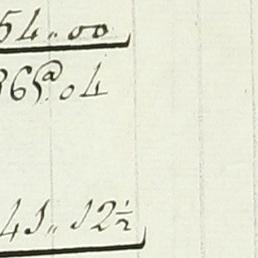 54..00
865.04
41..12½